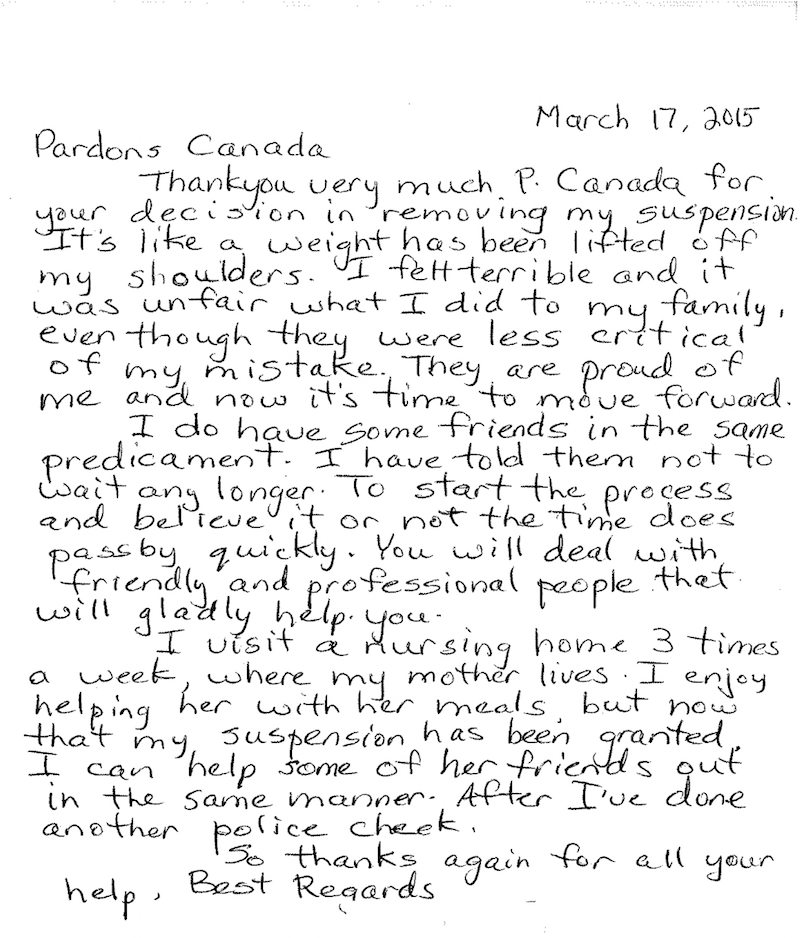 March 17, 2015
Pardons Canada
Thankyou very much P. Canada for
your decision in removing my suspension.
It's like a weight has been lifted off
my shoulders. I felt terrible and it
was unfair what I did to my family,
even though they were less critical
of my mistake. They are proud of
me and now it's time to move forward.
I do have some friends in the same
predicament. I have told them not to
wait any longer. To start the process
and believe it or not the time does
pass by quickly. You will deal with
friendly and professional people that
will gladly help you.
I visit a nursing home 3 times
a week, where my mother lives. I enjoy
helping her with her meals, but now
that my suspension has been granted,
I can help some of her friends out
in the same manner. After I've done
another police check.
So thanks again for all your
help, Best Regards